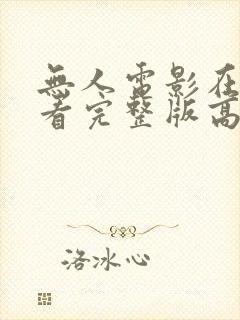 無人電影在
看完整版高
洛冰心